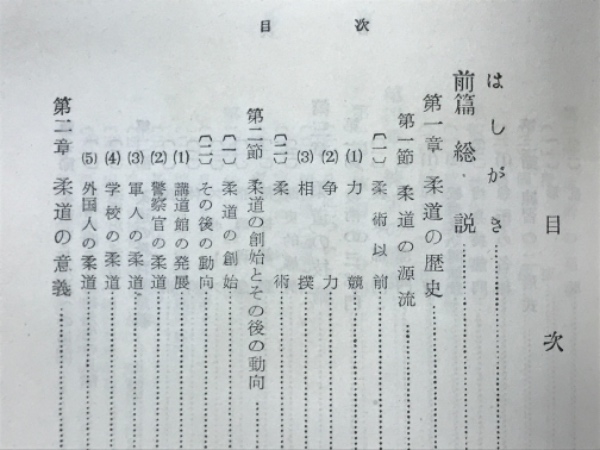 目次
目次
はしがき
前篇 総説
第一章 柔道の歴史
第一節 柔道の源流
〔一〕柔術以前
(1) 力競
(2) 争力
(3) 相撲
〔二〕柔術
第二節 柔道の創始とその後の動向
〔一〕柔道の創始
〔二〕その後の動向
(1) 講道館の発展
(2) 警察官の柔道
(3) 軍人の柔道
(4) 学校の柔道
(5) 外国人の柔道
第二章 柔道の意義